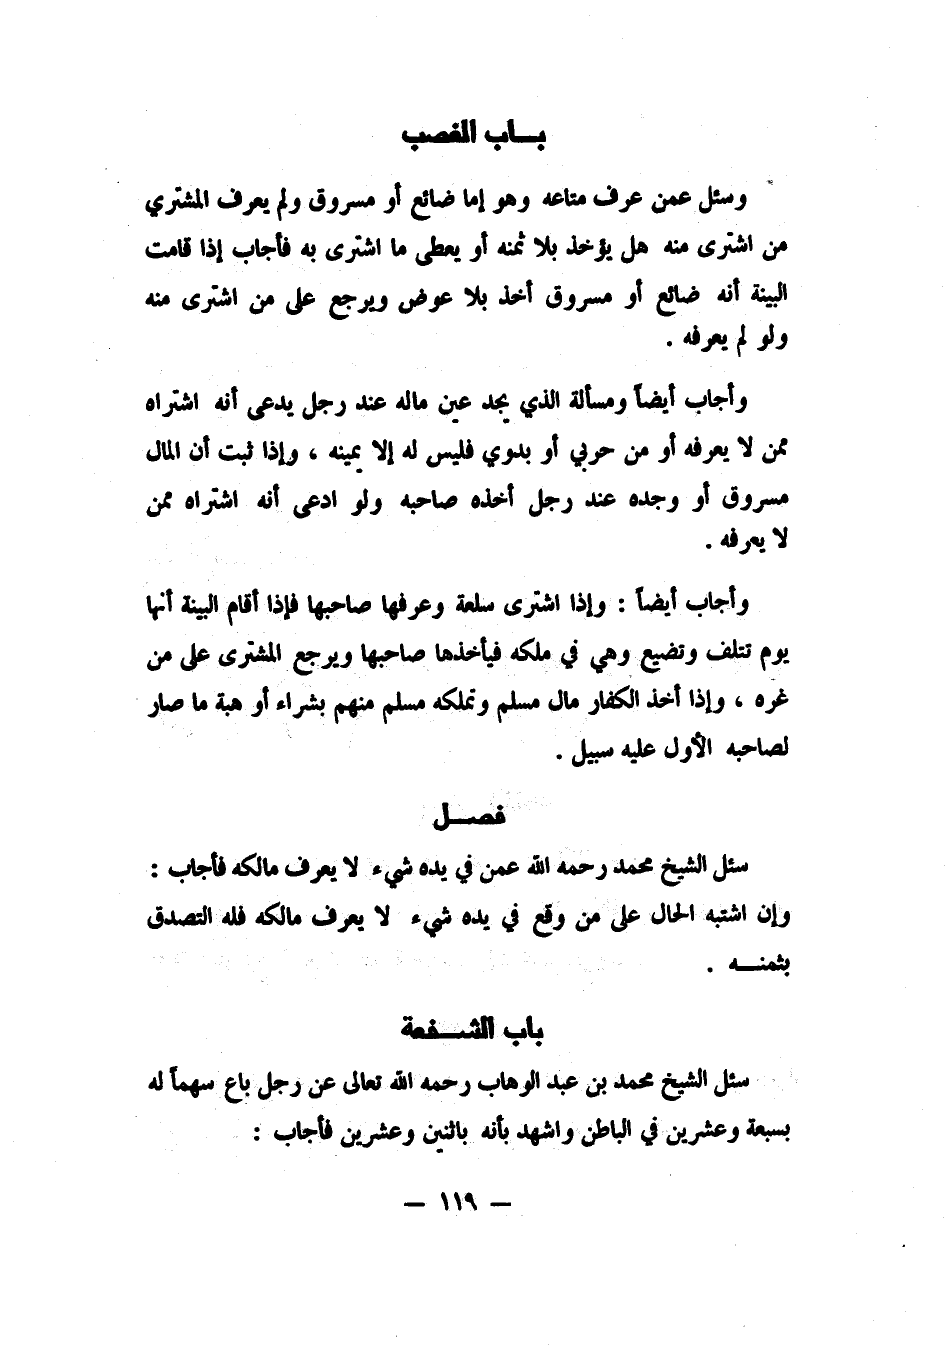 بـــاب الغصب
وسئل عمن عرف متاعه وهو إما ضائع أو مسروق ولم يعرف المشتري
من اشترى منه هل يؤخذ بلا ثمنه أو يعطى ما اشترى به فأجاب إذا قامت
البينة أنه ضائع أو مسروق أخذ بلا عوض ويرجع على من اشترى منه
ولو لم يعرفه .
وأجاب أيضاً ومسألة الذي يجد عين ماله عند رجل يدعى أنه اشتراه
ممن لا يعرفه أو من حربي أو بدوي فليس له إلا يمينه ، وإذا ثبت أن المال
مسروق أو وجده عند رجل أخذه صاحبه ولو ادعى أنه اشتراه ممن
لا يعرفه .
وأجاب أيضاً : وإذا اشترى سلعة وعرفها صاحبها فإذا أقام البينة أنها
يوم تتلف وتضيع وهي في ملكه فيأخذها صاحبها ويرجع المشترى على من
غره ، وإذا أخذ الكفار مال مسلم وتملكه مسلم منهم بشراء أو هبة ما صار
لصاحبه الأول عليه سبيل .
فصـــل
سئل الشيخ محمد رحمه الله عمن في يده شيء لا يعرف مالكه فأجاب :
وإن اشتبه الحال على من وقع في يده شيء لا يعرف مالكه فله التصدق
بثمنـــه .
باب الشـــفعة
سئل الشيخ محمد بن عبد الوهاب رحمه الله تعالى عن رجل باع سهماً له
بسبعة وعشرين في الباطن واشهد بأنه باثنين وعشرين فأجاب :
— ١١٩ —